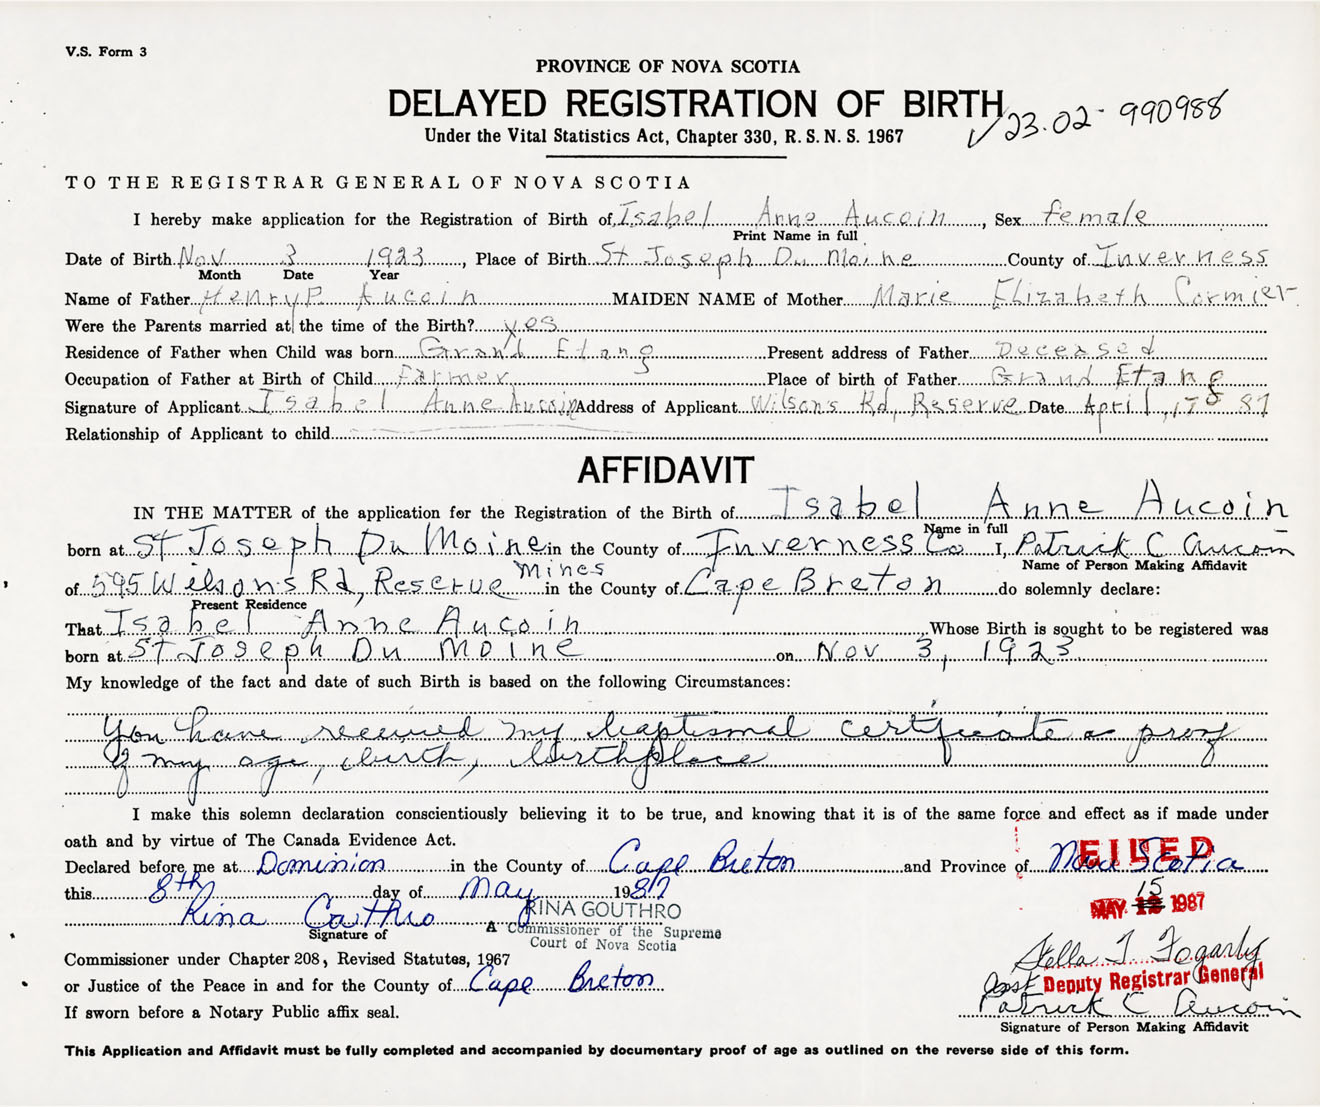 V.S. Form 3
PROVINCE OF NOVA SCOTIA
DELAYED REGISTRATION OF BIRTH
23.02-990988
Under the Vital Statistics Act, Chapter 330, R.S.N.S. 1967
TO THE REGISTRAR GENERAL OF NOVA SCOTIA
I hereby make application for the Registration of Birth of Isabel Anne Aucoin, Sex female
Print Name in full
Date of Birth Nov 3 1923, Place of Birth St Joseph Du Moine County of Inverness
Month Date Year
Name of Father Henry P Aucoin MAIDEN NAME of Mother Marie Elizabeth Cormier
Were the Parents married at the time of the Birth? yes
Residence of Father when Child was born Grand Etang Present address of Father Deceased
Occupation of Father at Birth of Child Farmer Place of birth of Father Grand Etang
Signature of Applicant Isabel Anne Aucoin Address of Applicant Wilson's Rd, Reserve Date April, 17 87
Relationship of Applicant to child
AFFIDAVIT
IN THE MATTER of the application for the Registration of the Birth of Isabel Anne Aucoin
Name in full
born at St Joseph Du Moine in the County of Inverness Co I, Patrick C Aucoin
Name of Person Making Affidavit
of 595 Wilson's Rd, Reserve Mines in the County of Cape Breton do solemnly declare:
Present Residence
That Isabel Anne Aucoin Whose Birth is sought to be registered was
born at St Joseph Du Moine on Nov 3, 1923
My knowledge of the fact and date of such Birth is based on the following Circumstances:
You have received my baptismal certificate as proof
of my age, birth, birthplace
I make this solemn declaration conscientiously believing it to be true, and knowing that it is of the same force and effect as if made under
oath and by virtue of The Canada Evidence Act.
FILED
Declared before me at Dominion in the County of Cape Breton and Province of Nova Scotia
this 8th day of May 1987
15
MAY 1987
Rina Gouthro
RINA GOUTHRO
Signature of
A Commissioner of the Supreme
Court of Nova Scotia
Stella T. Fogarty
Commissioner under Chapter 208, Revised Statutes, 1967
Asst Deputy Registrar General
or Justice of the Peace in and for the County of Cape Breton
Patrick C Aucoin
If sworn before a Notary Public affix seal.
Signature of Person Making Affidavit
This Application and Affidavit must be fully completed and accompanied by documentary proof of age as outlined on the reverse side of this form.